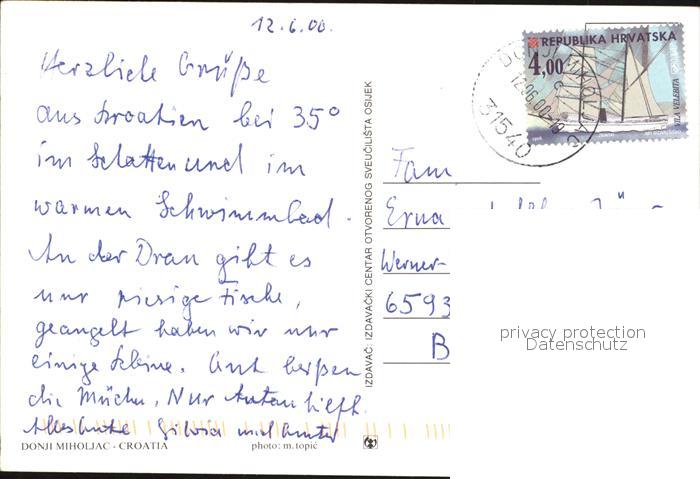 12.6.00.
Herzliche Grüße
aus Kroatien bei 35°
im Schatten und im
warmen Schwimmbad.
An der Drau gibt es
nur riesige Fische,
geangelt haben wir nur
einige kleine. Gut beißen
die Mücken. Nur Autan hilft.
Alles Gute Silvia und Gunter
DONJI MIHOLJAC - CROATIA photo: m. topić
IZDAVAČ: IZDAVAČKI CENTAR OTVORENOG SVEUČILIŠTA OSIJEK
REPUBLIKA HRVATSKA
4,00
VILA VELEBITA
DONJI MIHOLJAC
12.06.00-18
31540
Fam
Erna
Werner-
6593
B
privacy protection
Datenschutz